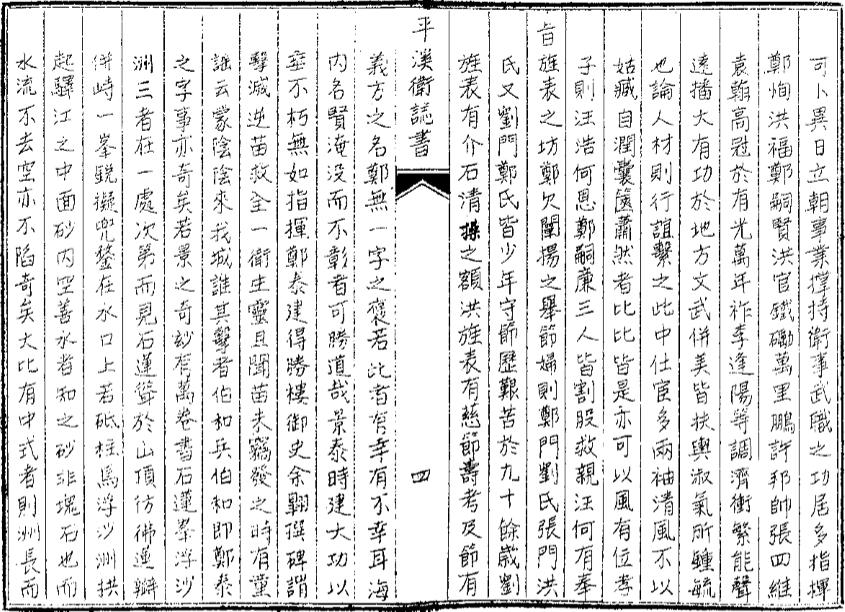 可卜異日立朝事業撑持衛事武職之功居多指揮
鄭恂洪福鄭嗣賢洪官鐵礪萬里鵬許邦帥張四維
袁翰高冠於有光萬年祚李逢陽等調濟衝繁能聲
遠播大有功於地方文武併美皆扶輿淑氣所鍾毓
也論人材則行誼繫之此中仕宦多兩袖清風不以
姑臧自潤囊篋蕭然者比比皆是亦可以風有位孝
子則汪浩何恩鄭嗣廉三人皆割股救親汪何有奉
旨旌表之坊鄭欠闡揚之舉節婦則鄭門劉氏張門洪
氏又劉門鄭氏皆少年守節歷艱苦於九十餘歲劉
旌表有介石清操之額洪旌表有慈節壽考及節有
平溪衛誌書
四
義方之名鄭無一字之褒若此者有幸有不幸耳海
內名賢淹没而不彰者可勝道哉景泰時建大功以
垂不朽無如指揮鄭泰建得勝樓御史余翺撰碑謂
擊滅逆苗救全一衛生靈且聞苗未竊發之時有童
謠云蒙陰陰來找城誰其擊者伯和兵伯和即鄭泰
之字事亦奇矣若景之奇紗有萬卷書石蓮峯浮沙
洲三者在一處次第而見石蓮聳於山頂仿佛蓮瓣
併峙一峯銳擬兜鍪在水口上若砥柱焉浮沙洲拱
起驛江之中面砂内空善水者知之砂非塊石也而
水流不去空亦不陷奇矣大比有中式者則洲長而